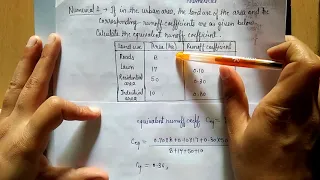 Numerical 2 → If in the urban area, the land use of the area and the
corresponding runoff coefficients are as given below.
Calculate the equivalent runoff coefficient.
Land use Area (ha) Runoff coefficient
Roads 8
Lawn 17 0.10
Residential area 50 0.30
Industrial area 10 0.80
equivalent runoff coeff
8+17+50+10
= 0.36